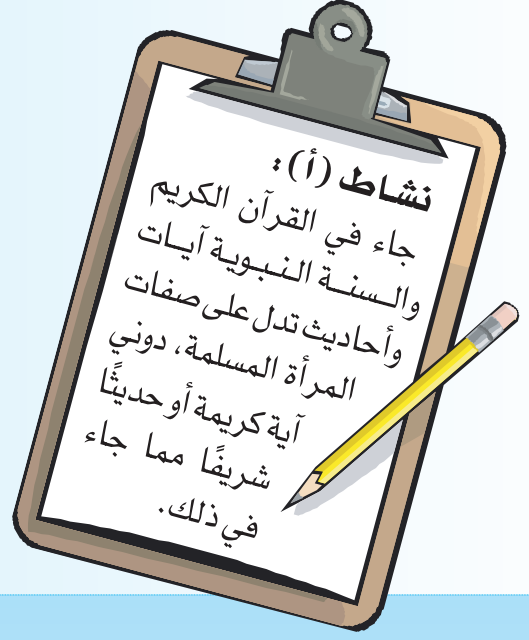 نشاط (أ):
جاء في القرآن الكريم
والسنة النبوية آيات
وأحاديث تدل على صفات
المرأة المسلمة، دوني
آية كريمة أو حديثًا
شريفًا مما جاء
في ذلك.